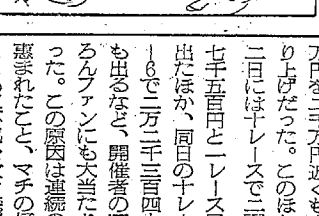 万円を二千万円近くも
り上げだった。このほ
二日には十レースで二
七千五百円と一レース
出たほか、同日の十レ
―6で二万二千三百四
も出るなど、開催者の
ろんファンにも大当た
った。この原因は連続の
恵まれたこと、マチの